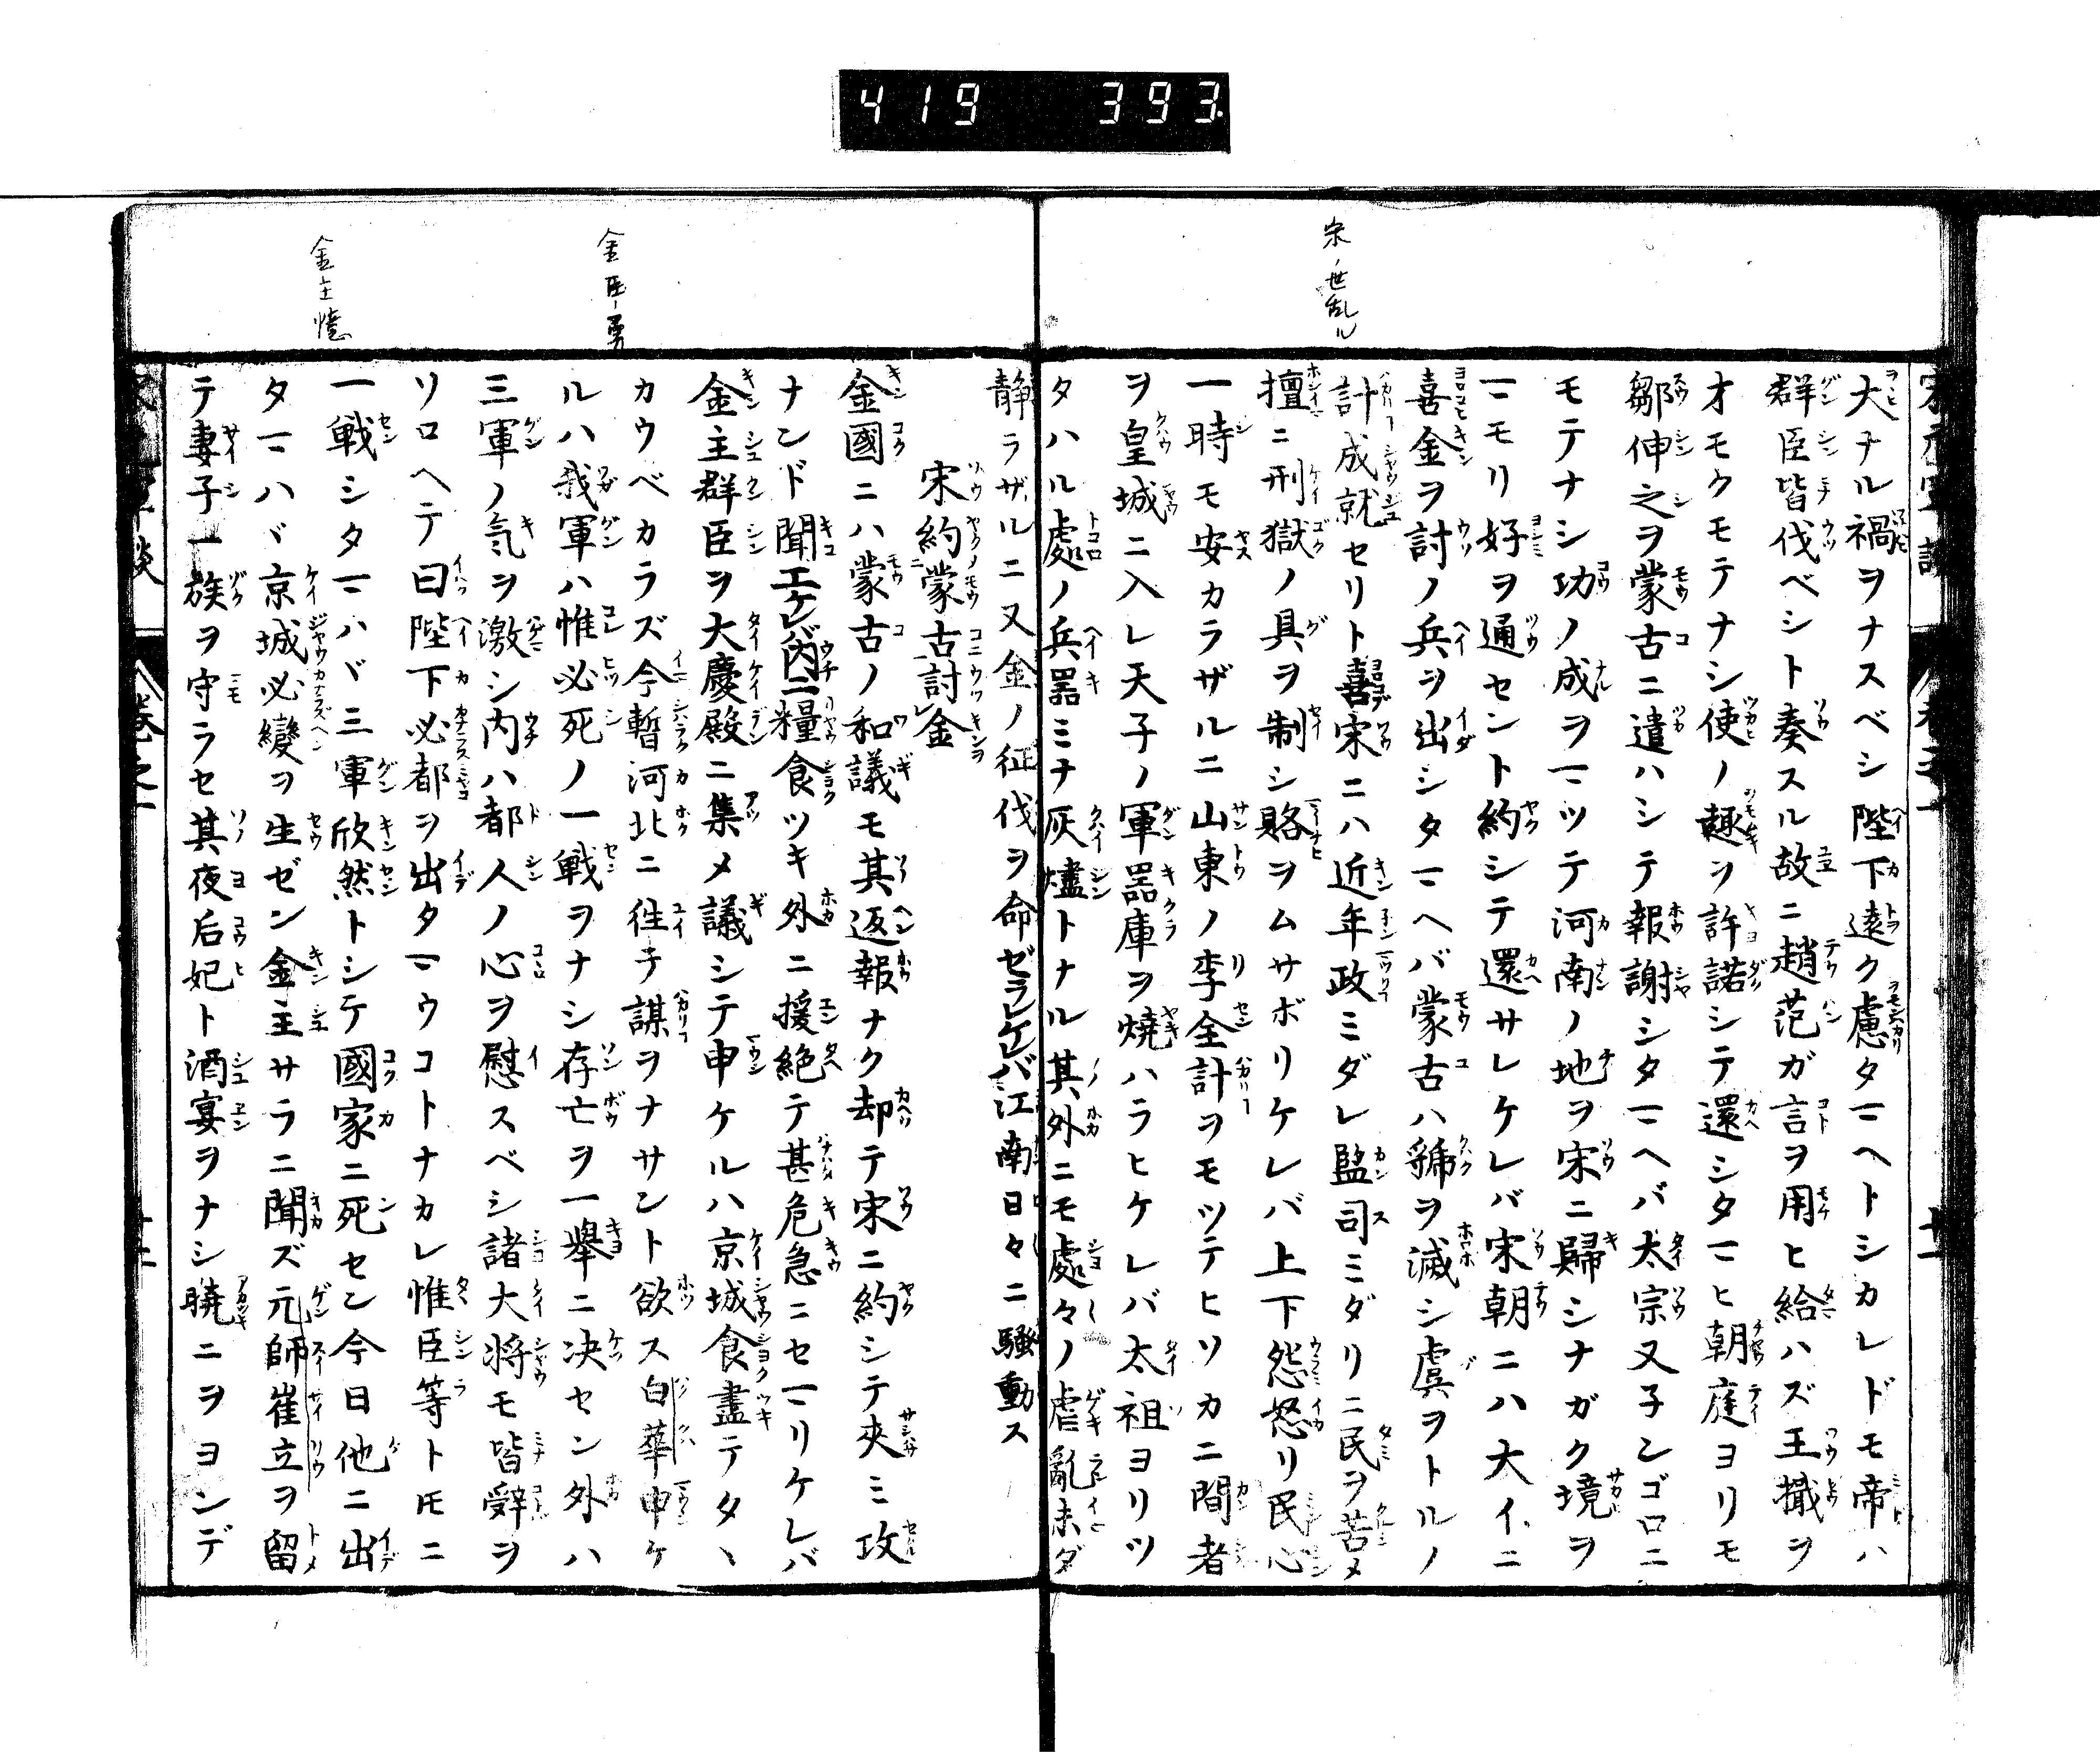 419 393.
宋ノ世乱ル
大ナル禍ヲナスベシ陛下遠ク慮タマヘトシカレドモ帝ハ
群臣皆伐ベシト奏スル故ニ趙范ガ言ヲ用ヒ給ハズ王檝ヲ
オモクモテナシ使ノ趣ヲ許諾シテ還シタマヒ朝庭ヨリモ
鄒伸之ヲ蒙古ニ遣ハシテ報謝シタマヘバ太宗又子ンゴロニ
モテナシ功ノ成ヲマツテ河南ノ地ヲ宋ニ歸シナガク境ヲ
マモリ好ヲ通セント約シテ還サレケレバ宋朝ニハ大イニ
喜金ヲ討ノ兵ヲ出シタマヘバ蒙古ハ虢ヲ滅シ虞ヲトルノ
計成就セリト喜宋ニハ近年政ミダレ監司ミダリニ民ヲ苦メ
擅ニ刑獄ノ具ヲ制シ賂ヲムサボリケレバ上下怨怒リ民心
一時モ安カラザルニ山東ノ李全計ヲモツテヒソカニ間者
ヲ皇城ニ入レ天子ノ軍噐庫ヲ燒ハラヒケレバ太祖ヨリツ
タハル處ノ兵噐ミナ灰燼トナル其外ニモ處々ノ虐亂未ダ
静ラザルニ又金ノ征伐ヲ命ゼラレケレバ江南日々ニ騒動ス
宋約蒙古討金
金國ニハ蒙古ノ和議モ其返報ナク却テ宋ニ約シテ夾ミ攻
ナンド聞エケレバ内ニ糧食ツキ外ニ援絶テ甚危急ニセマリケレバ
金主群臣ヲ大慶殿ニ集メ議シテ申ケルハ京城食盡テタヽ
カウベカラズ今暫河北ニ徃テ謀ヲナサント欲ス白華申ケ
ルハ我軍ハ惟必死ノ一戰ヲナシ存亡ヲ一舉ニ决セン外ハ
三軍ノ氣ヲ激シ内ハ都人ノ心ヲ慰スベシ諸大將モ皆辤ヲ
ソロヘテ曰陛下必都ヲ出タマウコトナカレ惟臣等トモニ
一戰シタマハヾ三軍欣然トシテ國家ニ死セン今日他ニ出
タマハヾ京城必變ヲ生ゼン金主サラニ聞ズ元師崔立ヲ留
テ妻子一族ヲ守ラセ其夜后妃ト酒宴ヲナシ曉ニヲヨンデ
金臣ノ勇
金主憶